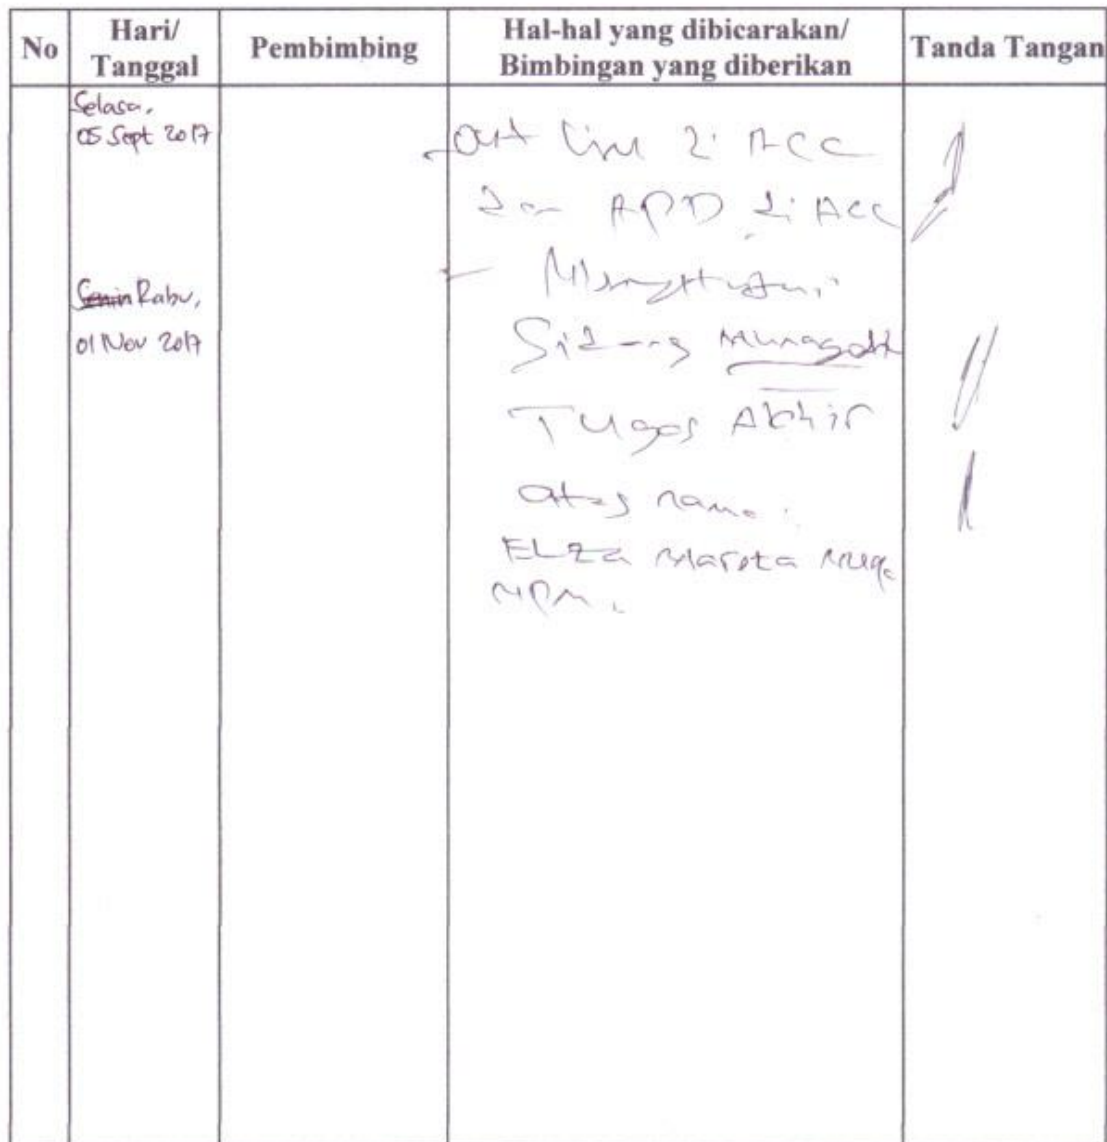 No
Hari/
Tanggal
Pembimbing
Hal-hal yang dibicarakan/
Bimbingan yang diberikan
Tanda Tangan
Selasa,
05 Sept 2017
- Out line di ACC
dan APD di Acc
Senin Rabu,
01 Nov 2017
-
Sidang
Tugas Akhir
atas nama :
ELZA Mareta
NPM.